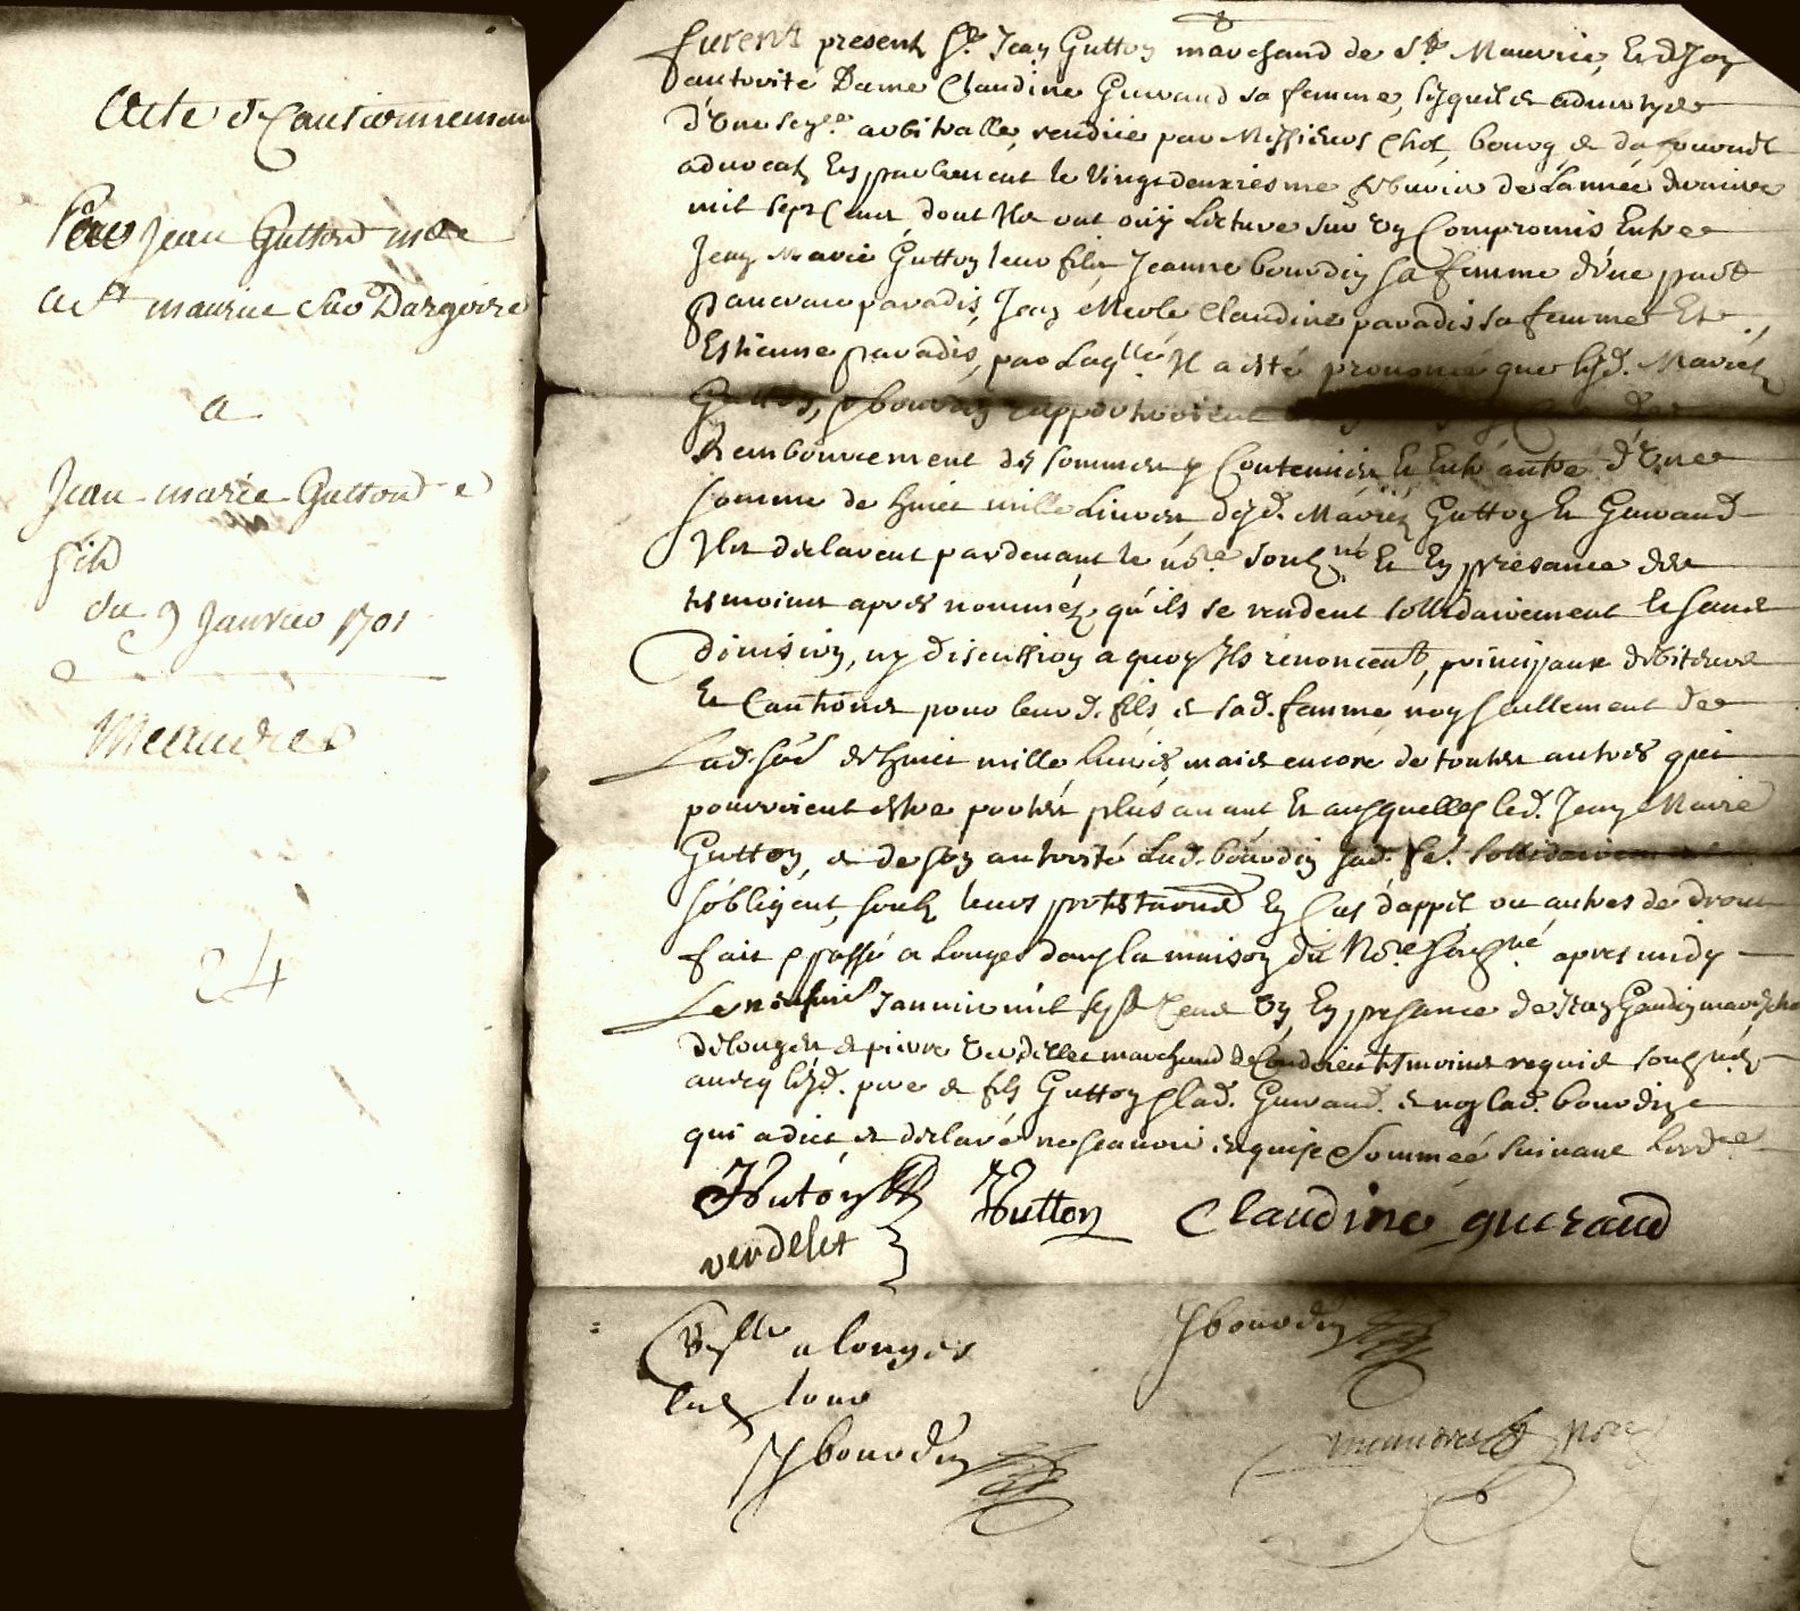 Acte de Cautionnement
Par Jean Gutton
a St maurice sur Dargoire
a
Jean marie Gutton
fils
du 9 Janvier 1701
Meaudres
24
furent presentz Sr. Jean Gutton marchand de St. Maurice, Et de Son
autorité Dame Claudine Gueraud sa femme, lesquels advertys
d'Une arbitralle, rendüe par Messieurs Chol, bourg, &
advocatz En parlement le Vingt deuxiesme febvrier de Lannée derniere
mil sept Cent, dont Ils ont ouÿ Lecture sur Un Compromis Entre
Jean Marie Gutton leur fils, Jeanne bourdin Sa femme d'Une part
paradis, Jean Merle Claudine paradis sa femme Et
Estienne paradis, par Laqlle. Il a esté prononcé que lesd. Mariés
Gutton, & bourdin rapporteroient
Remboursement des sommes y Contenües Et Entr'autre d'Une
somme de huict mille Livres, desd. Mariés Gutton Et Gueraud
Ils declarent pardevant le no.re soubz.né Et En presance des
tesmoins apres nommés, qu'ils se rendent sollidairement Et sans
Division, ny discussion a quoy Ils rénoncent, principaux debiteurs
Et Cautions pour leurd. fils & sad. femme, non seullement de
Lad. de huict mille livres, mais encore de toutes autres qui
pourroient estre portés plus avant, Et ausquelles led. Jean Marie
Gutton, & de son autorité Lad. bourdin sad. fe. sollidairement
s'obligent, soubz leurs protestaons En Cas d'appel ou autres de droit
fait & passé a Longes dans la maison du No.re soubz.né apres midy
Le neufvie Janvier mil sept Cent Un, En presance de Jean Gaudin
de Longes & pierre Verdellet marchand de Condrieu tesmoins requis soubznés
avecq lesd. pere & fils Gutton & lad. Gueraud. & non lad. bourdin
qui a dict & declaré ne scavoir enquise & sommée suivant Lord.ce
Gutton Gutton Claudine gueraud
verdelet
Con.lle a longes bourdin
lesd. jour
bourdin meaudres Nore